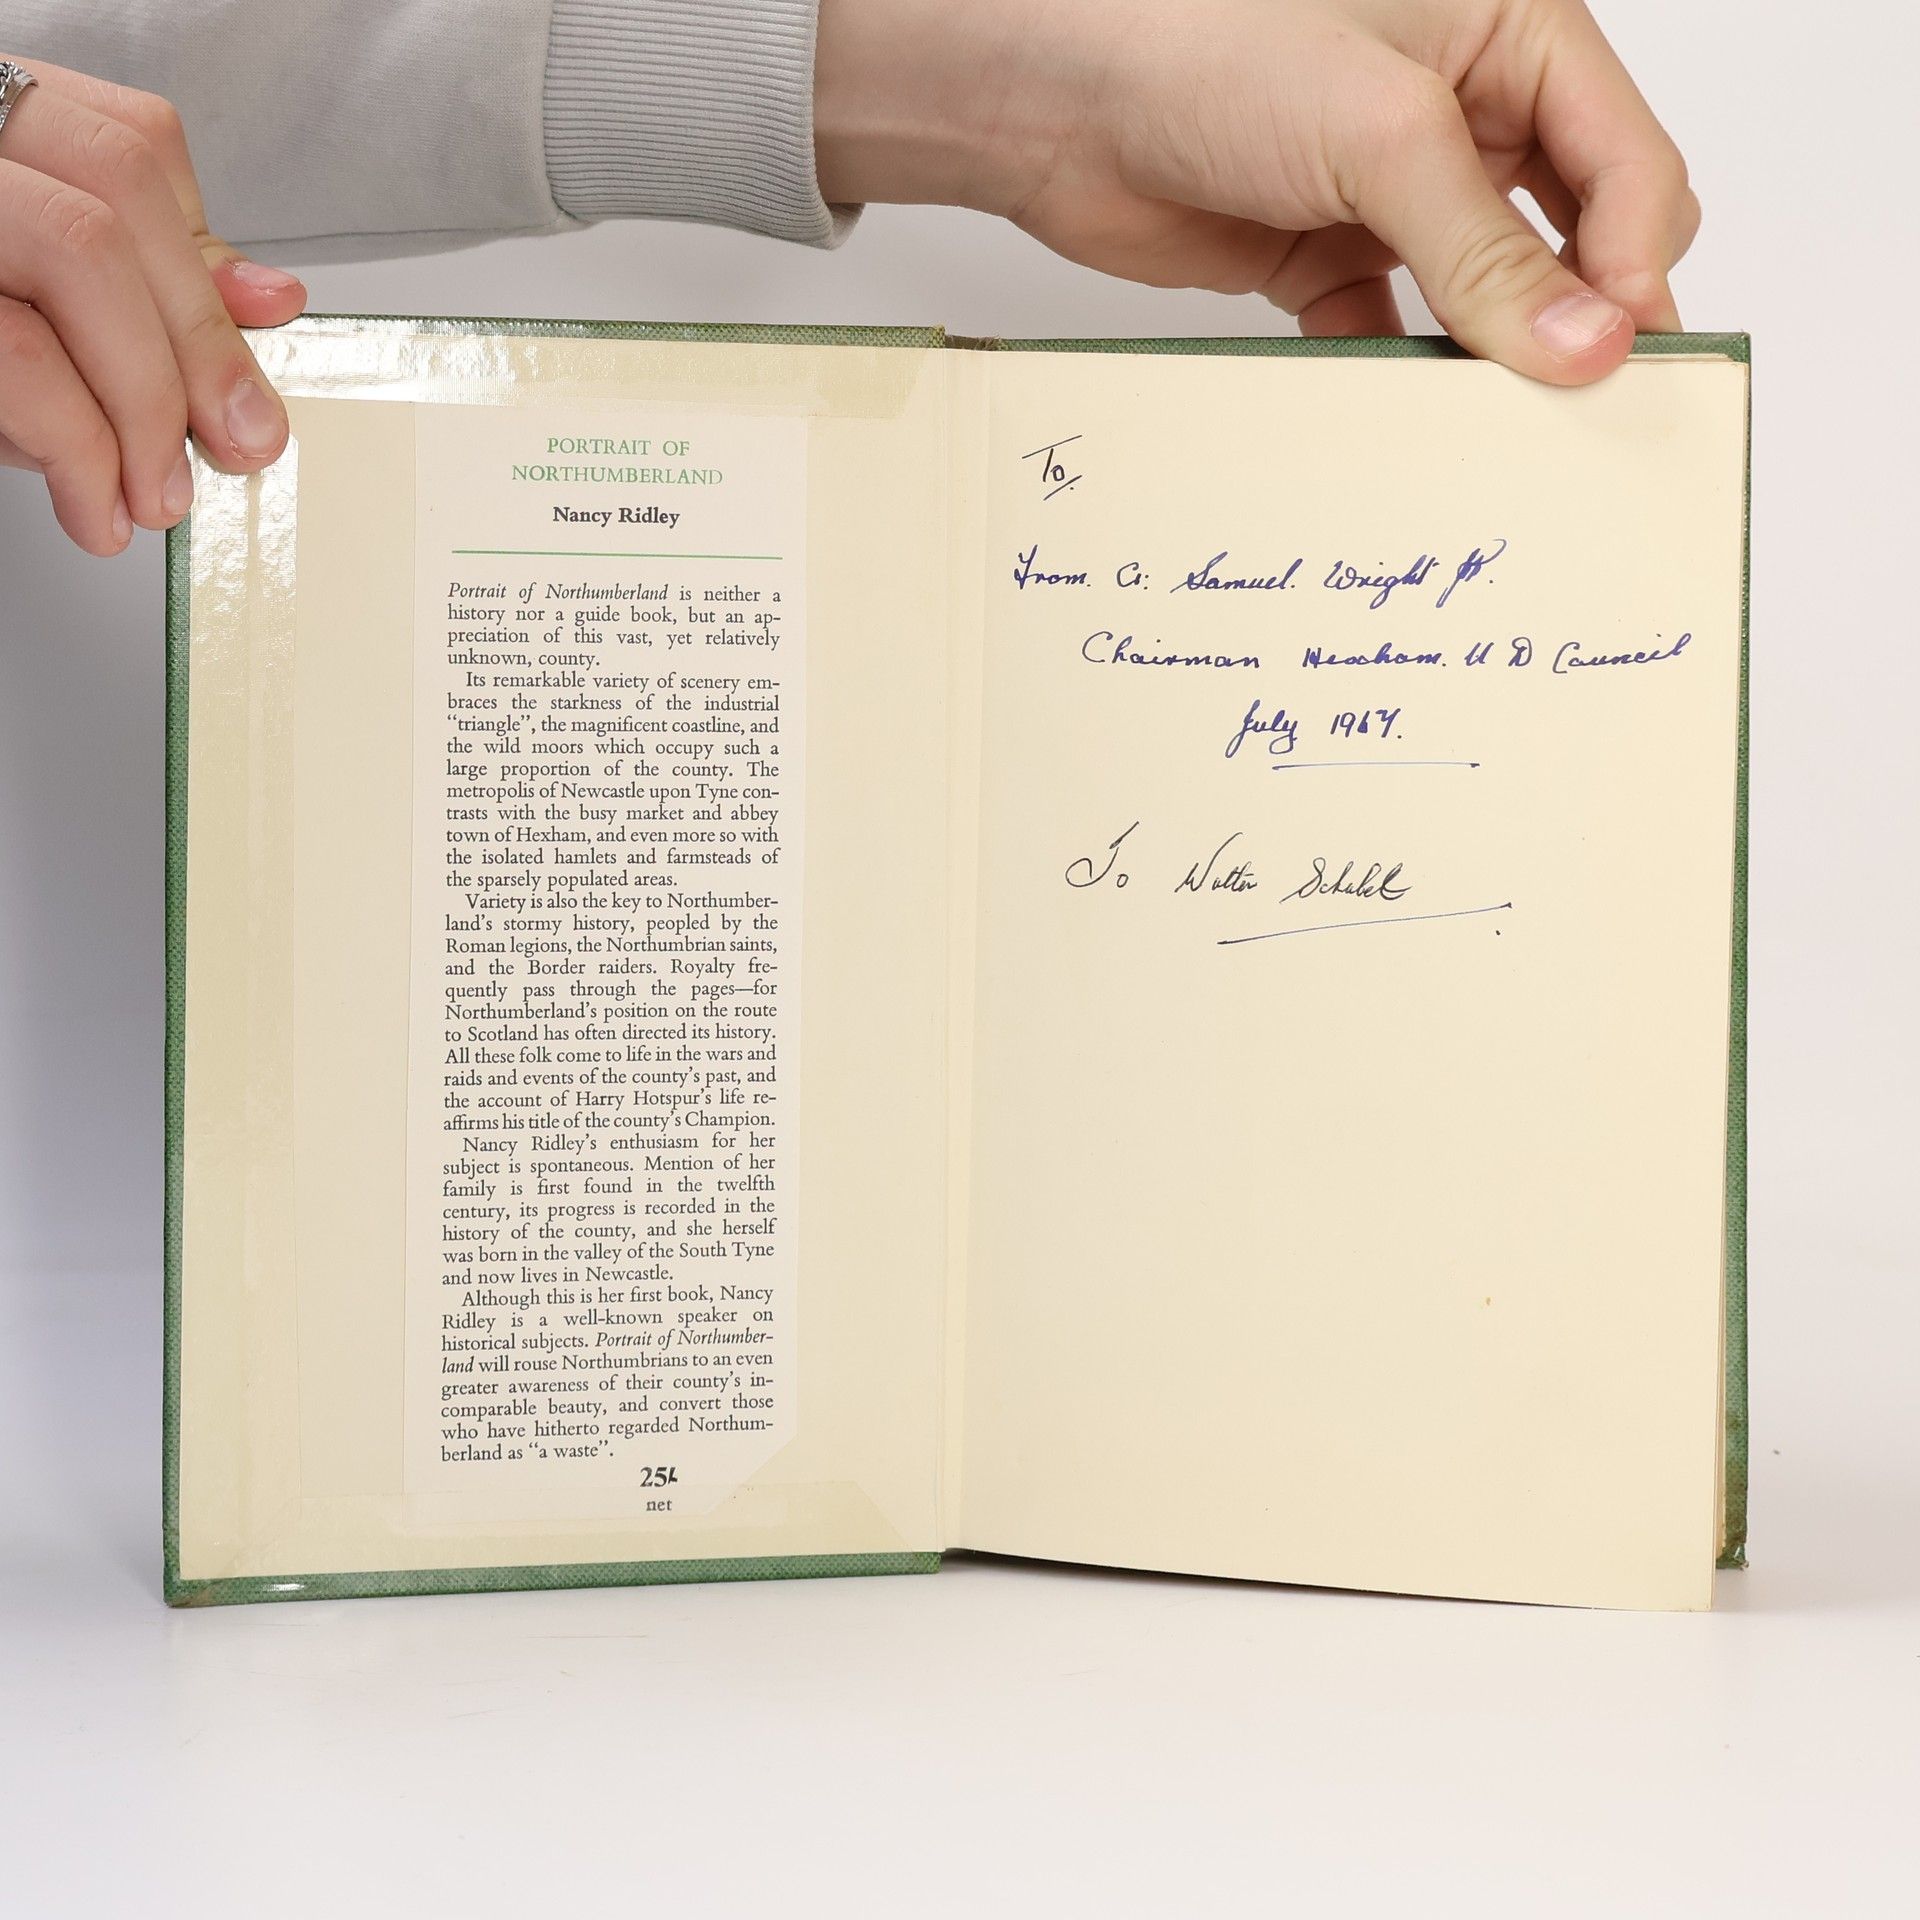 PORTRAIT OF
NORTHUMBERLAND
Nancy Ridley
Portrait of Northumberland is neither a
history nor a guide book, but an ap-
preciation of this vast, yet relatively
unknown, county.
Its remarkable variety of scenery em-
braces the starkness of the industrial
“triangle”, the magnificent coastline, and
the wild moors which occupy such a
large proportion of the county. The
metropolis of Newcastle upon Tyne con-
trasts with the busy market and abbey
town of Hexham, and even more so with
the isolated hamlets and farmsteads of
the sparsely populated areas.
Variety is also the key to Northumber-
land’s stormy history, peopled by the
Roman legions, the Northumbrian saints,
and the Border raiders. Royalty fre-
quently pass through the pages—for
Northumberland’s position on the route
to Scotland has often directed its history.
All these folk come to life in the wars and
raids and events of the county’s past, and
the account of Harry Hotspur’s life re-
affirms his title of the county’s Champion.
Nancy Ridley’s enthusiasm for her
subject is spontaneous. Mention of her
family is first found in the twelfth
century, its progress is recorded in the
history of the county, and she herself
was born in the valley of the South Tyne
and now lives in Newcastle.
Although this is her first book, Nancy
Ridley is a well-known speaker on
historical subjects. Portrait of Northumber-
land will rouse Northumbrians to an even
greater awareness of their county’s in-
comparable beauty, and convert those
who have hitherto regarded Northum-
berland as “a waste”.
25/-
net
To
From. Samuel. Wright
Chairman Hexham. U D Council
July 1967.
To Walter